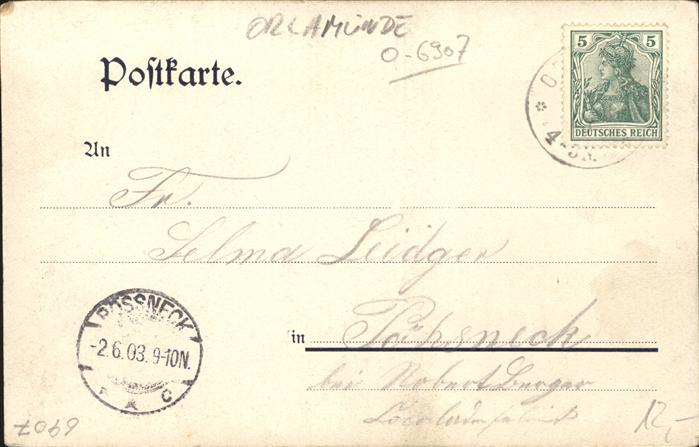 ORLAMÜNDE
O-6907
Postkarte.
5 5
DEUTSCHES REICH
4-5N.
An
Fr.
Selma Leidger
PÖSSNECK
-2.6.03. 9-10N.
in Pößneck
bei Robert Berger
6907
12,-